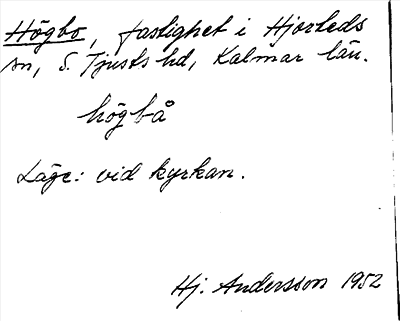 Högbo, fastighet i Hjorteds
sn, S. Tjusts hd, Kalmar län.
högbå
Läge: vid kyrkan.
Hj. Andersson 1952